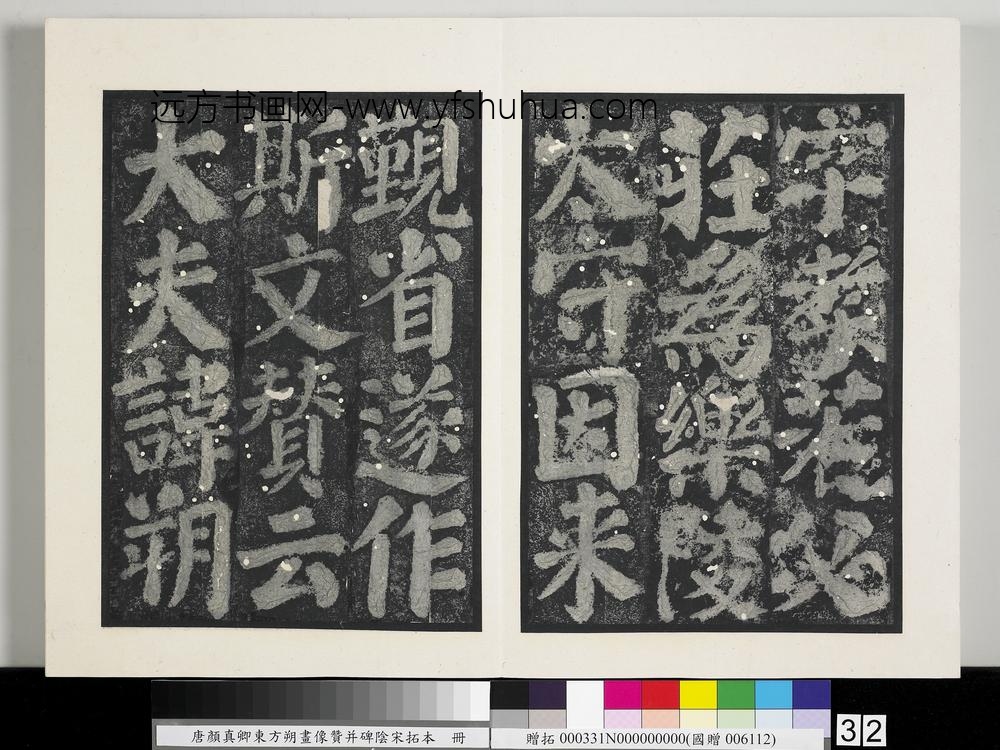 远方书画网-www.yfshuhua.com
字孝若必
莊爲樂陵
太守因来
覲省遂作
斯文賛云
大夫諱朔
唐顏真卿東方朔畫像贊并碑陰宋拓本 冊
贈拓 000331N000000000(國贈 006112)
32